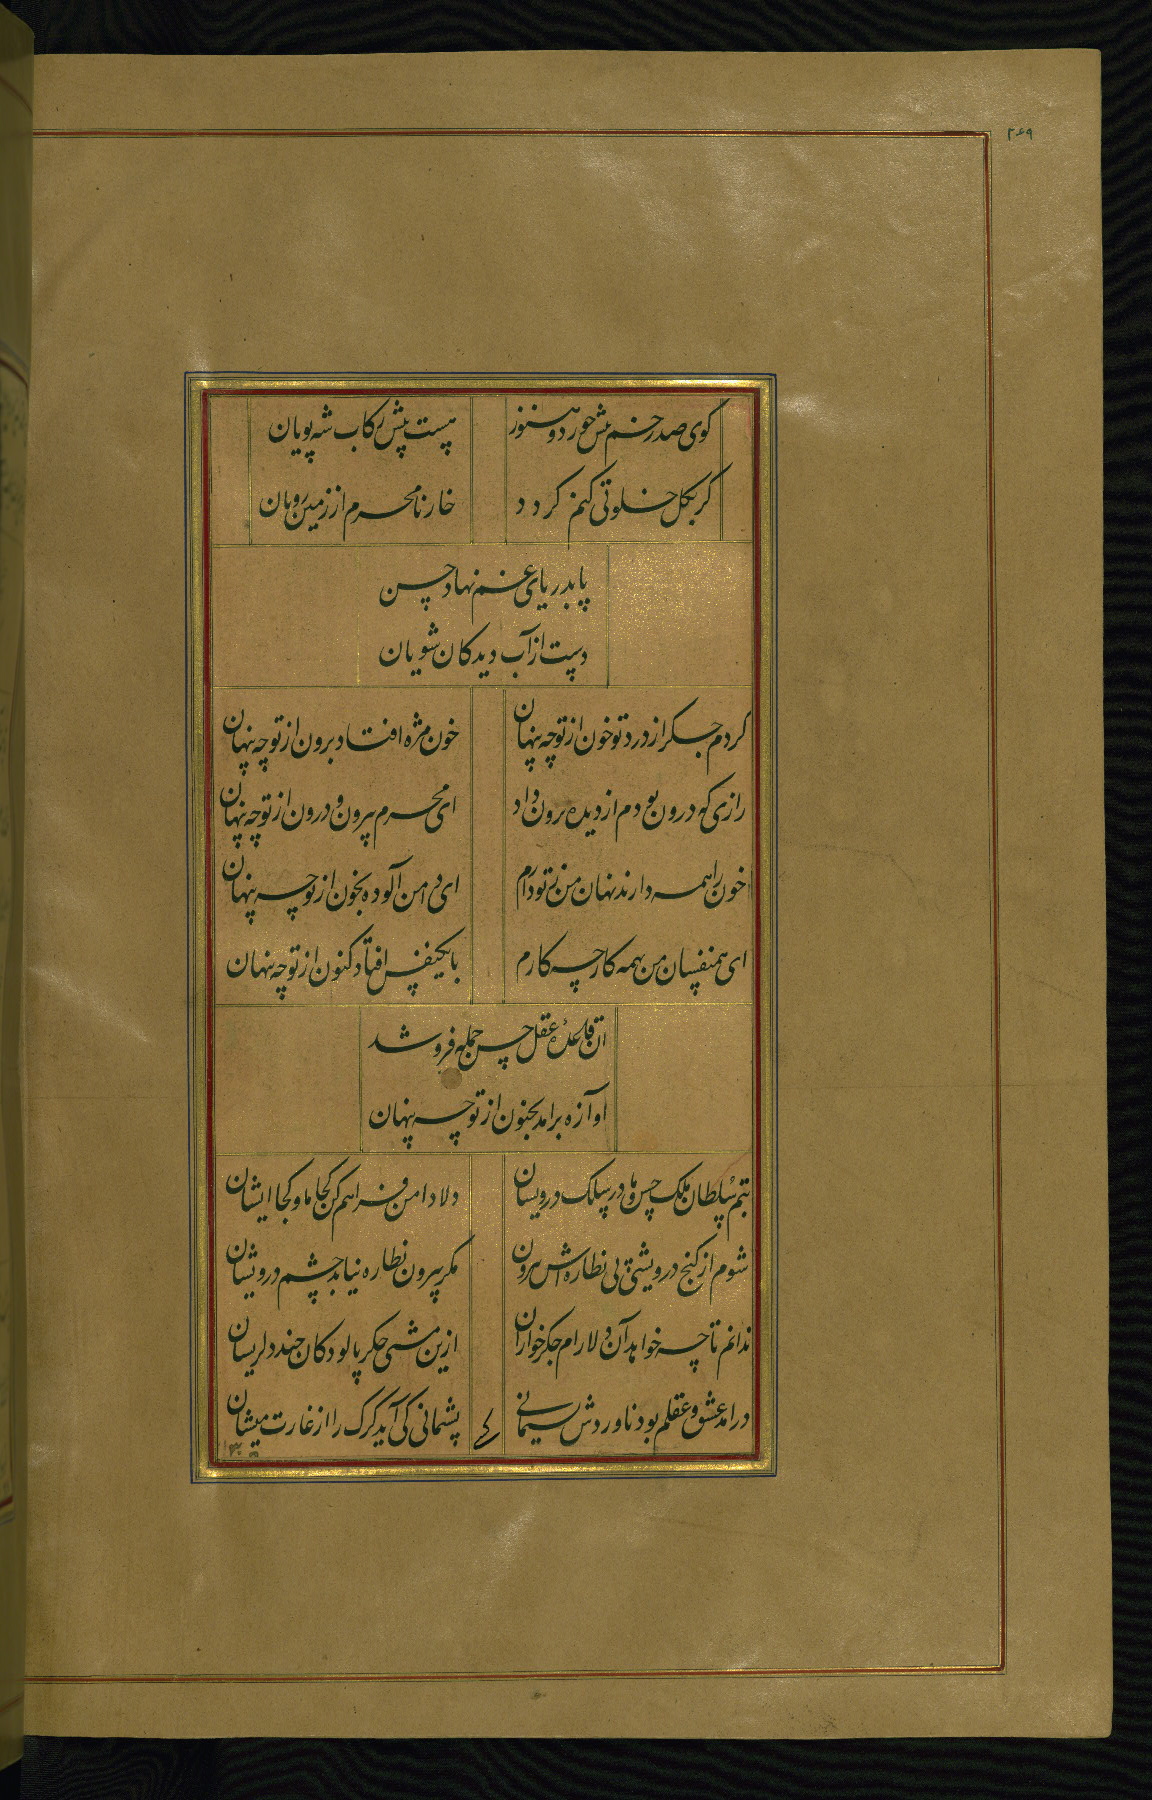 ۲۶۹
گوی صد زخم بیش خورد و هنوز
هست پیش رکاب شه پویان
گر بگل خلوتی کنم گردد
خار نامحرم از زمین رویان
پا بدریای غم نهاد حسن
دست از آب دیدگان شویان
کردم جگر از درد تو خون از تو چه پنهان
خون مژه افتاد برون از تو چه پنهان
رازی که درون بودم از دیده برون داد
ای محرم بیرون و درون از تو چه پنهان
خون را همه دارند نهان من ز تو دارم
ای دامن آلوده بخون از تو چه پنهان
ای همنفسان من همه کار چه کارم
با یکنفس افتاد کنون از تو چه پنهان
آن قاعده عقل حسن جمله فرو شد
و آوازه برآمد بجنون از تو چه پنهان
بتم سلطان ملک حسن و ما در سلک درویشان
دلا دامن فراهم کن کجا ما و کجا ایشان
شوم از کنج درویشی پی نظاره اش بیرون
مگر بیرون نظاره نیاید چشم درویشان
ندانم تا چه خواهد آن دلارام جگرخواران
ازین مشتی جگر پالودگان چند دلریشان
درآمد عشق و عقلم بود ناوردش پشیمانی
پشیمانی کی آید گرگ را از غارت میشان